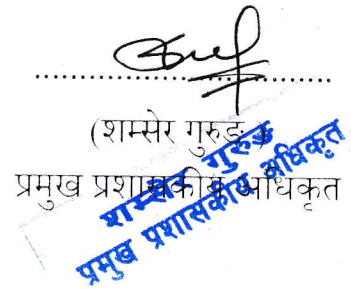 (शम्सेर गुरुङ)
प्रमुख प्रशासकीय अधिकृत
शम्सेर गुरुङ
प्रमुख प्रशासकीय अधिकृत